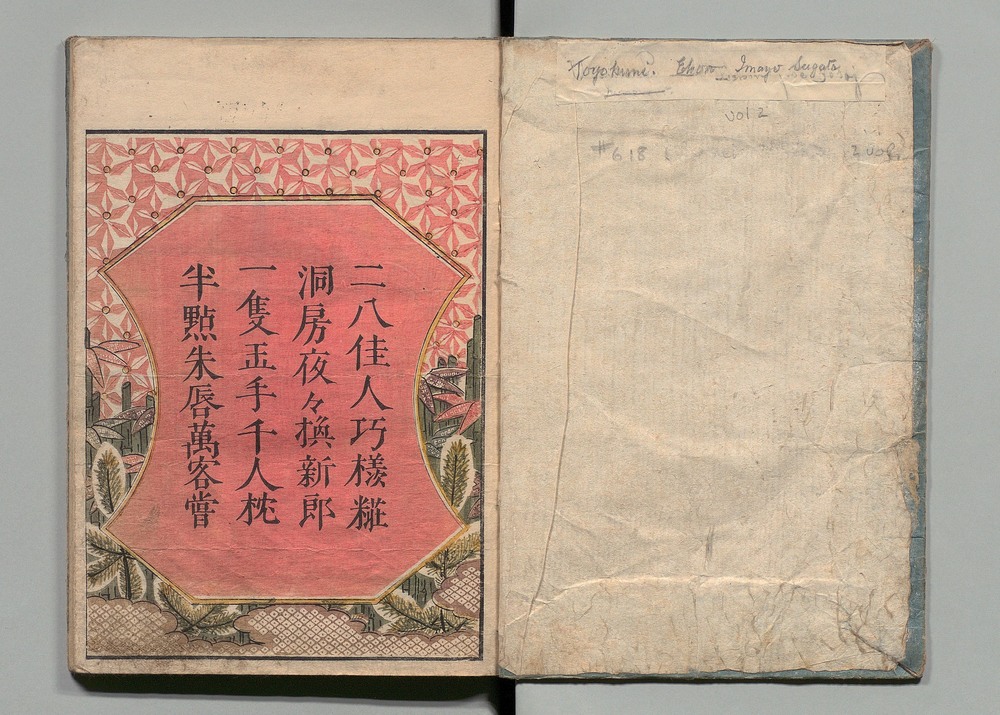 Toyokuni. Ehon Imayo Sugata
vol 2
#618
2 vols.
二八佳人巧樣粧
洞房夜々換新郎
一隻玉手千人枕
半點朱唇萬客嘗